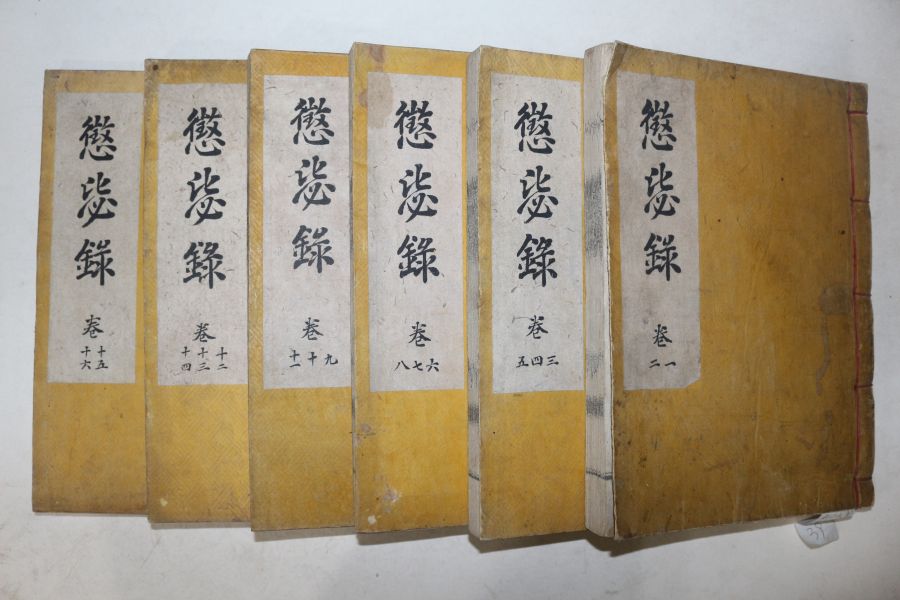 懲毖錄
卷
一
二
懲毖錄
卷
三
四
五
懲毖錄
卷
六
七
八
懲毖錄
卷
九
十
十一
懲毖錄
卷
十二
十三
十四
懲毖錄
卷
十五
十六